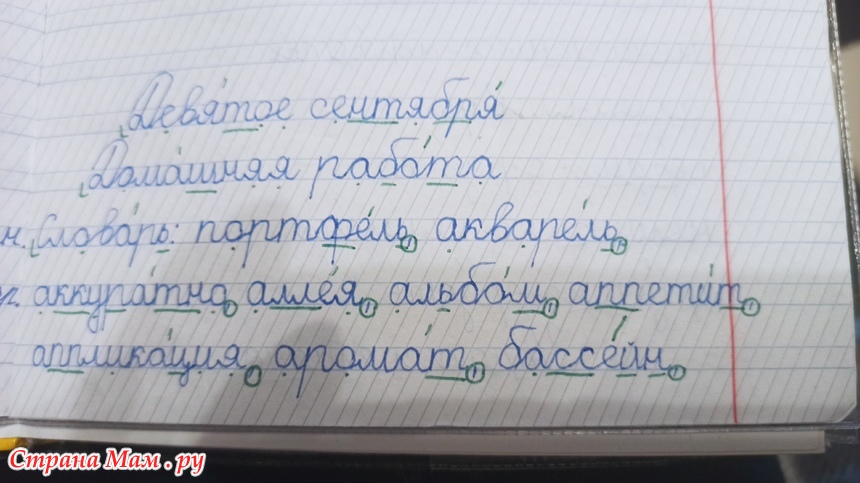 Девятое сентября
Домашняя работа
н. Словарь: портфель, акварель,
аккуратно, аллея, альбом, аппетит,
аппликация, аромат, бассейн,
Страна Мам.ру